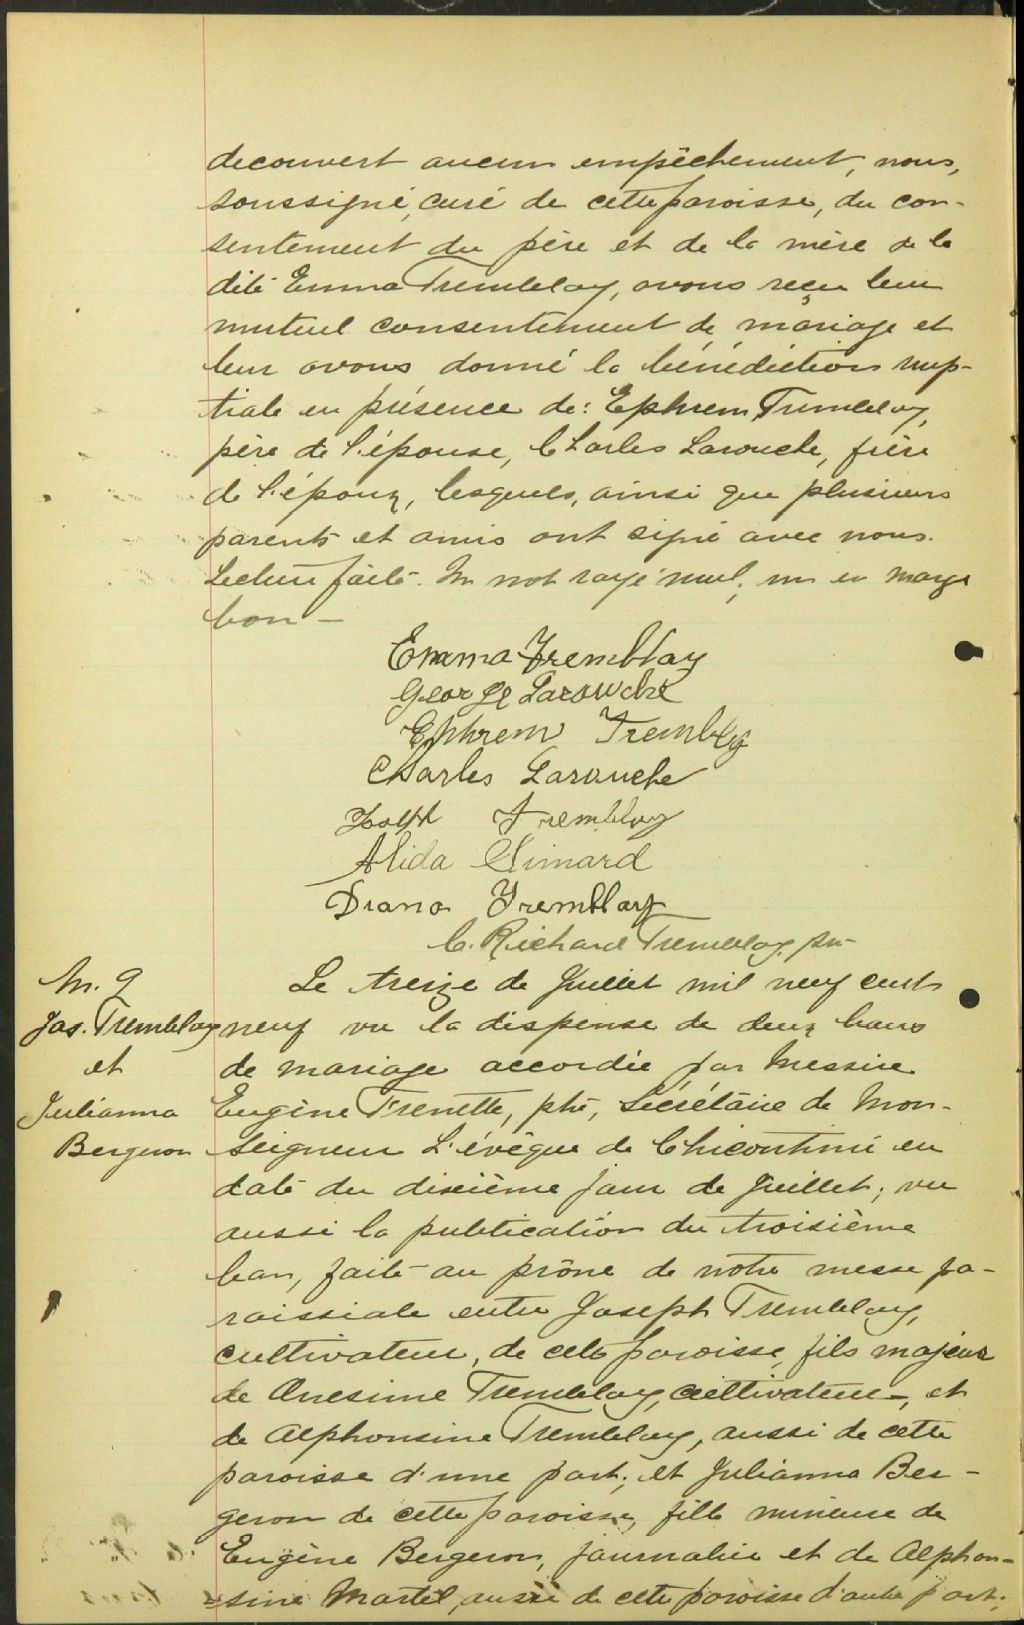 decouvert aucun empêchement, nous,
soussigné, curé de cette paroisse, du con-
sentement du père et de la mère de la
dite Emma Tremblay, avons reçu leur
mutuel consentement de mariage et
leur avons donné la bénédiction nup-
tiale en présence de: Ephrem Tremblay,
père de l'épouse, Charles Larouche, frère
de l'époux, lesquels, ainsi que plusieurs
parents et amis ont signé avec nous.
Lecture faite. Un mot rayé nul, un en marge
bon —
Emma Tremblay
George Larouche
Ephrem Tremblay
Charles Larouche
Joseph Tremblay
Alida Simard
Diana Tremblay
C. Richard Tremblay, ptr
M. 9
Jos. Tremblay
et
Julianna
Bergeron
Le treize de Juillet mil neuf cents
neuf vu la dispense de deux bans
de mariage accordée par Messire
Eugène Frenette, ptre, Sécrétaire de Mon-
seigneur L'évêque de Chicoutimi en
date du dixième jour de Juillet; vu
aussi la publication du troisième
ban, faite au prône de notre messe pa-
roissiale entre Joseph Tremblay,
cultivateur, de cette paroisse, fils majeur
de Onesime Tremblay, cultivateur, et
de Alphonsine Tremblay, aussi de cette
paroisse d'une part; et Julianna Ber-
geron de cette paroisse, fille mineure de
Eugène Bergeron, journalier et de Alphon-
sine Martel, aussi de cette paroisse d'autre part;